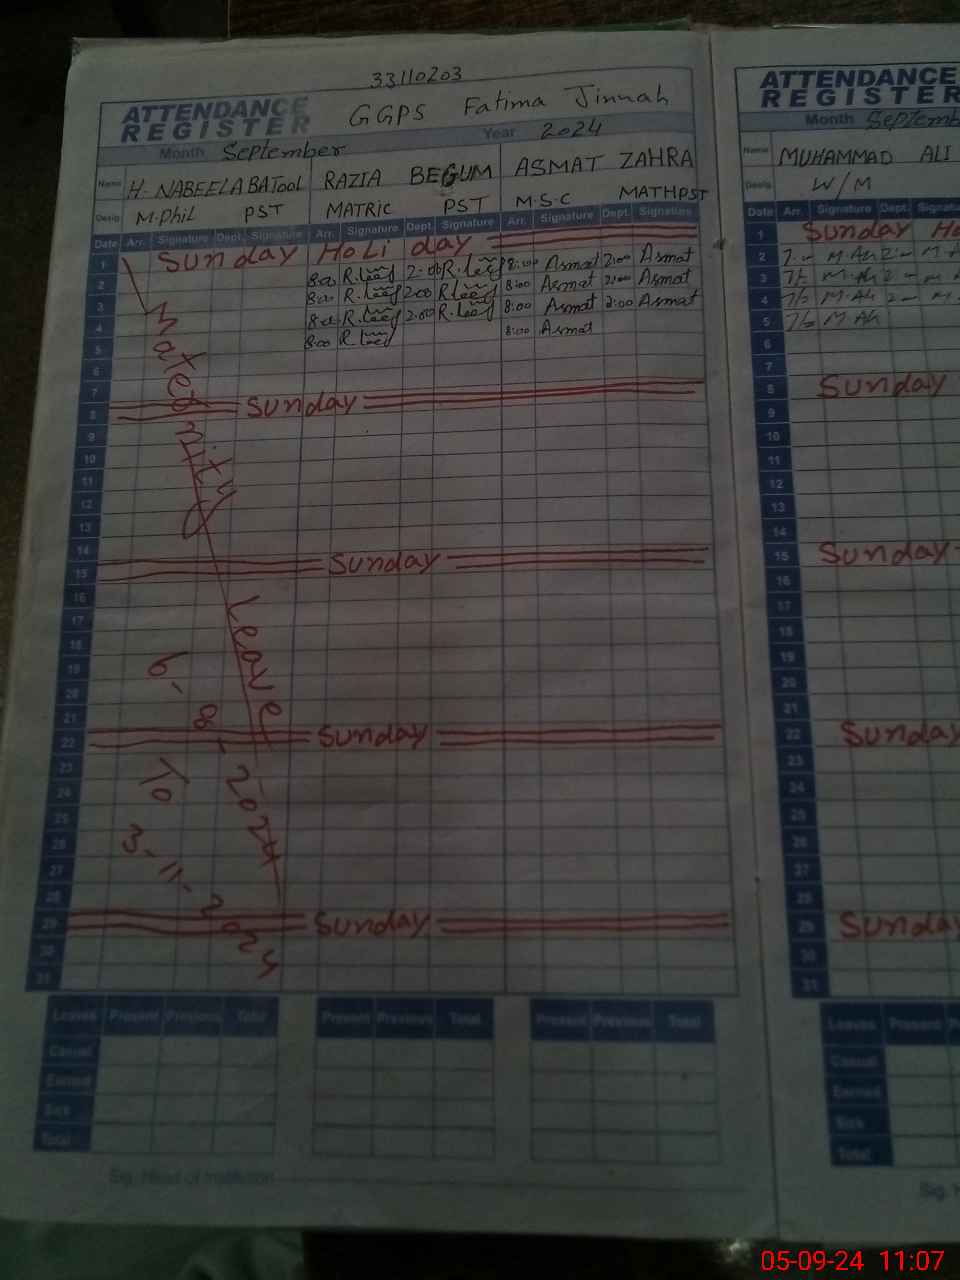 33110203
ATTENDANCE REGISTER GGPS Fatima Jinnah
Month September Year 2024
Name H. NABEELA BATOOL RAZIA BEGUM ASMAT ZAHRA
Desig M.Phil PST MATRIC PST M.S.C MATH PST
Date Arr. Signature Dept. Signature Arr. Signature Dept. Signature Arr. Signature Dept. Signature
1 Sunday HoLiday
2 8:00 2:00 8:00 Asmat 2:00 Asmat
3 8:00 2:00 8:00 Asmat 2:00 Asmat
4 8:00 2:00 8:00 Asmat 2:00 Asmat
5 8:00 8:00 Asmat
6
7
8 Sunday
9
10
11
12
13
14
15 Sunday
16
17
18
19
20
21
22 Sunday
23
24
25
26
27
28
29 Sunday
30
31
Maternity Leave
6-8-2024
To
3-11-2024
Leaves Present Previous Total Present Previous Total Present Previous Total
Casual
Earned
Sick
Total
Sig. Head of Institution
ATTENDANCE
REGISTER
Month Septemb
Name MUHAMMAD ALI
Desig. W/M
Date Arr. Signature Dept. Signatu
1 Sunday Ho
2 M.Ali
3 M.Ali
4 M.Ali
5 M.Ali
6
7
8 Sunday
9
10
11
12
13
14
15 Sunday
16
17
18
19
20
21
22 Sunday
23
24
25
26
27
28
29 Sunday
30
31
Leaves Present
Casual
Earned
Sick
Total
Sig.
05-09-24 11:07